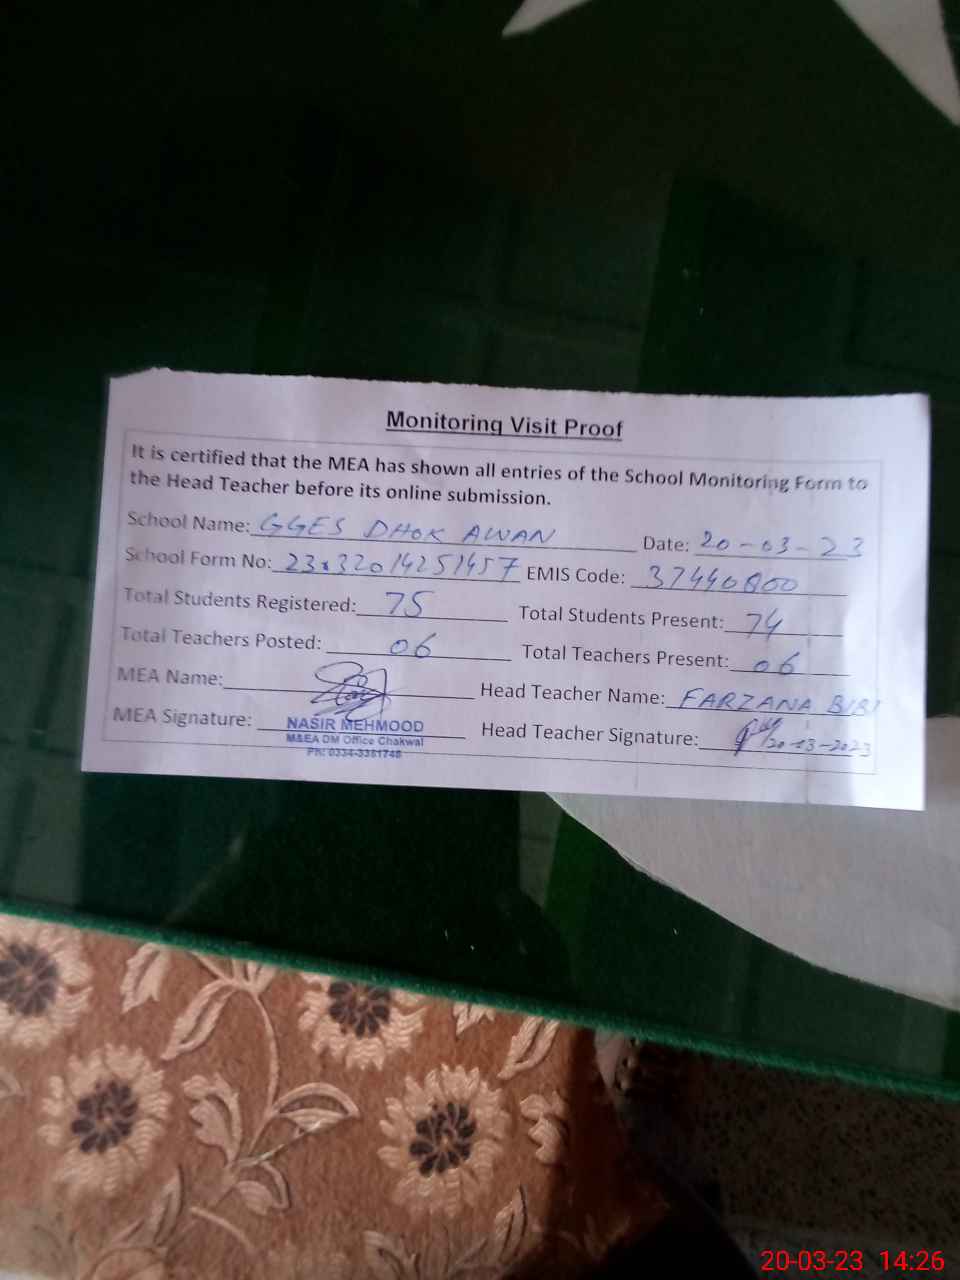 Monitoring Visit Proof
It is certified that the MEA has shown all entries of the School Monitoring Form to
the Head Teacher before its online submission.
School Name: GGES DHOK AWAN Date: 20-03-23
School Form No: EMIS Code: 37440800
Total Students Registered: 75 Total Students Present: 74
Total Teachers Posted: 06 Total Teachers Present: 06
MEA Name: Head Teacher Name: FARZANA BIBI
MEA Signature: NASIR MEHMOOD Head Teacher Signature: 20-03-2023
M&EA DM Office Chakwal
Ph: 0334-3381748
20-03-23 14:26